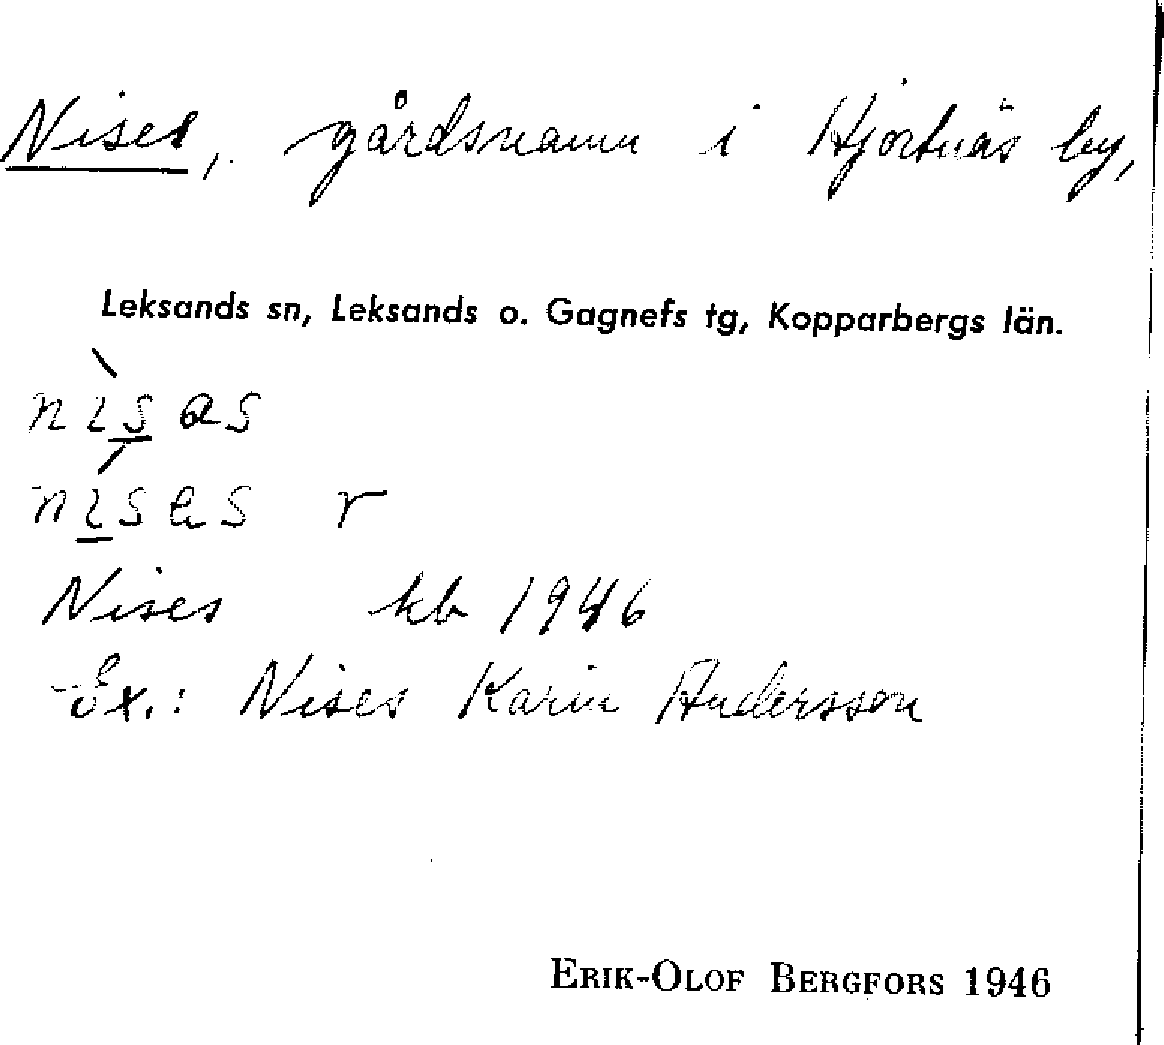 Nises, gårdsnamn i Hjortnäs by,
Leksands sn, Leksands o. Gagnefs tg, Kopparbergs län.
nìsas
r
Nises kb 1946
Ex.: Nises Karin Andersson
ERIK-OLOF BERGFORS 1946